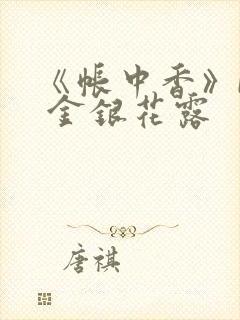 《帐中香》
金银花露
唐祺